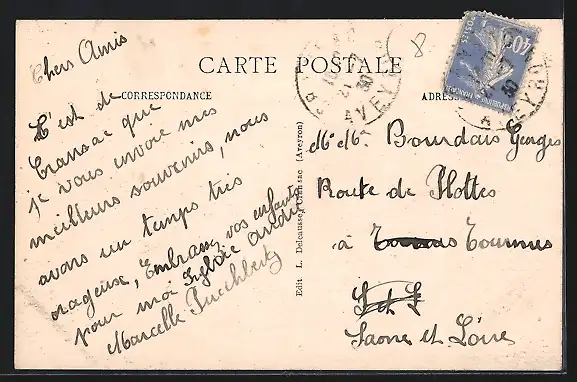 CARTE POSTALE
CORRESPONDANCE
ADRES
Chers Amis
C'est de
Cransac que
je vous envoie mes
meilleurs souvenirs, nous
avons un temps très
orageux, Embrassez vos enfants
pour moi
Marcelle
Edit. L. Delcausse, Cransac (Aveyron)
40c
REPUBLIQUE FRANÇAISE
AVEYRON
30
Mr Me Bourdais Georges
Route de Plottes
à Tournus
S et L
Saone et Loire
8